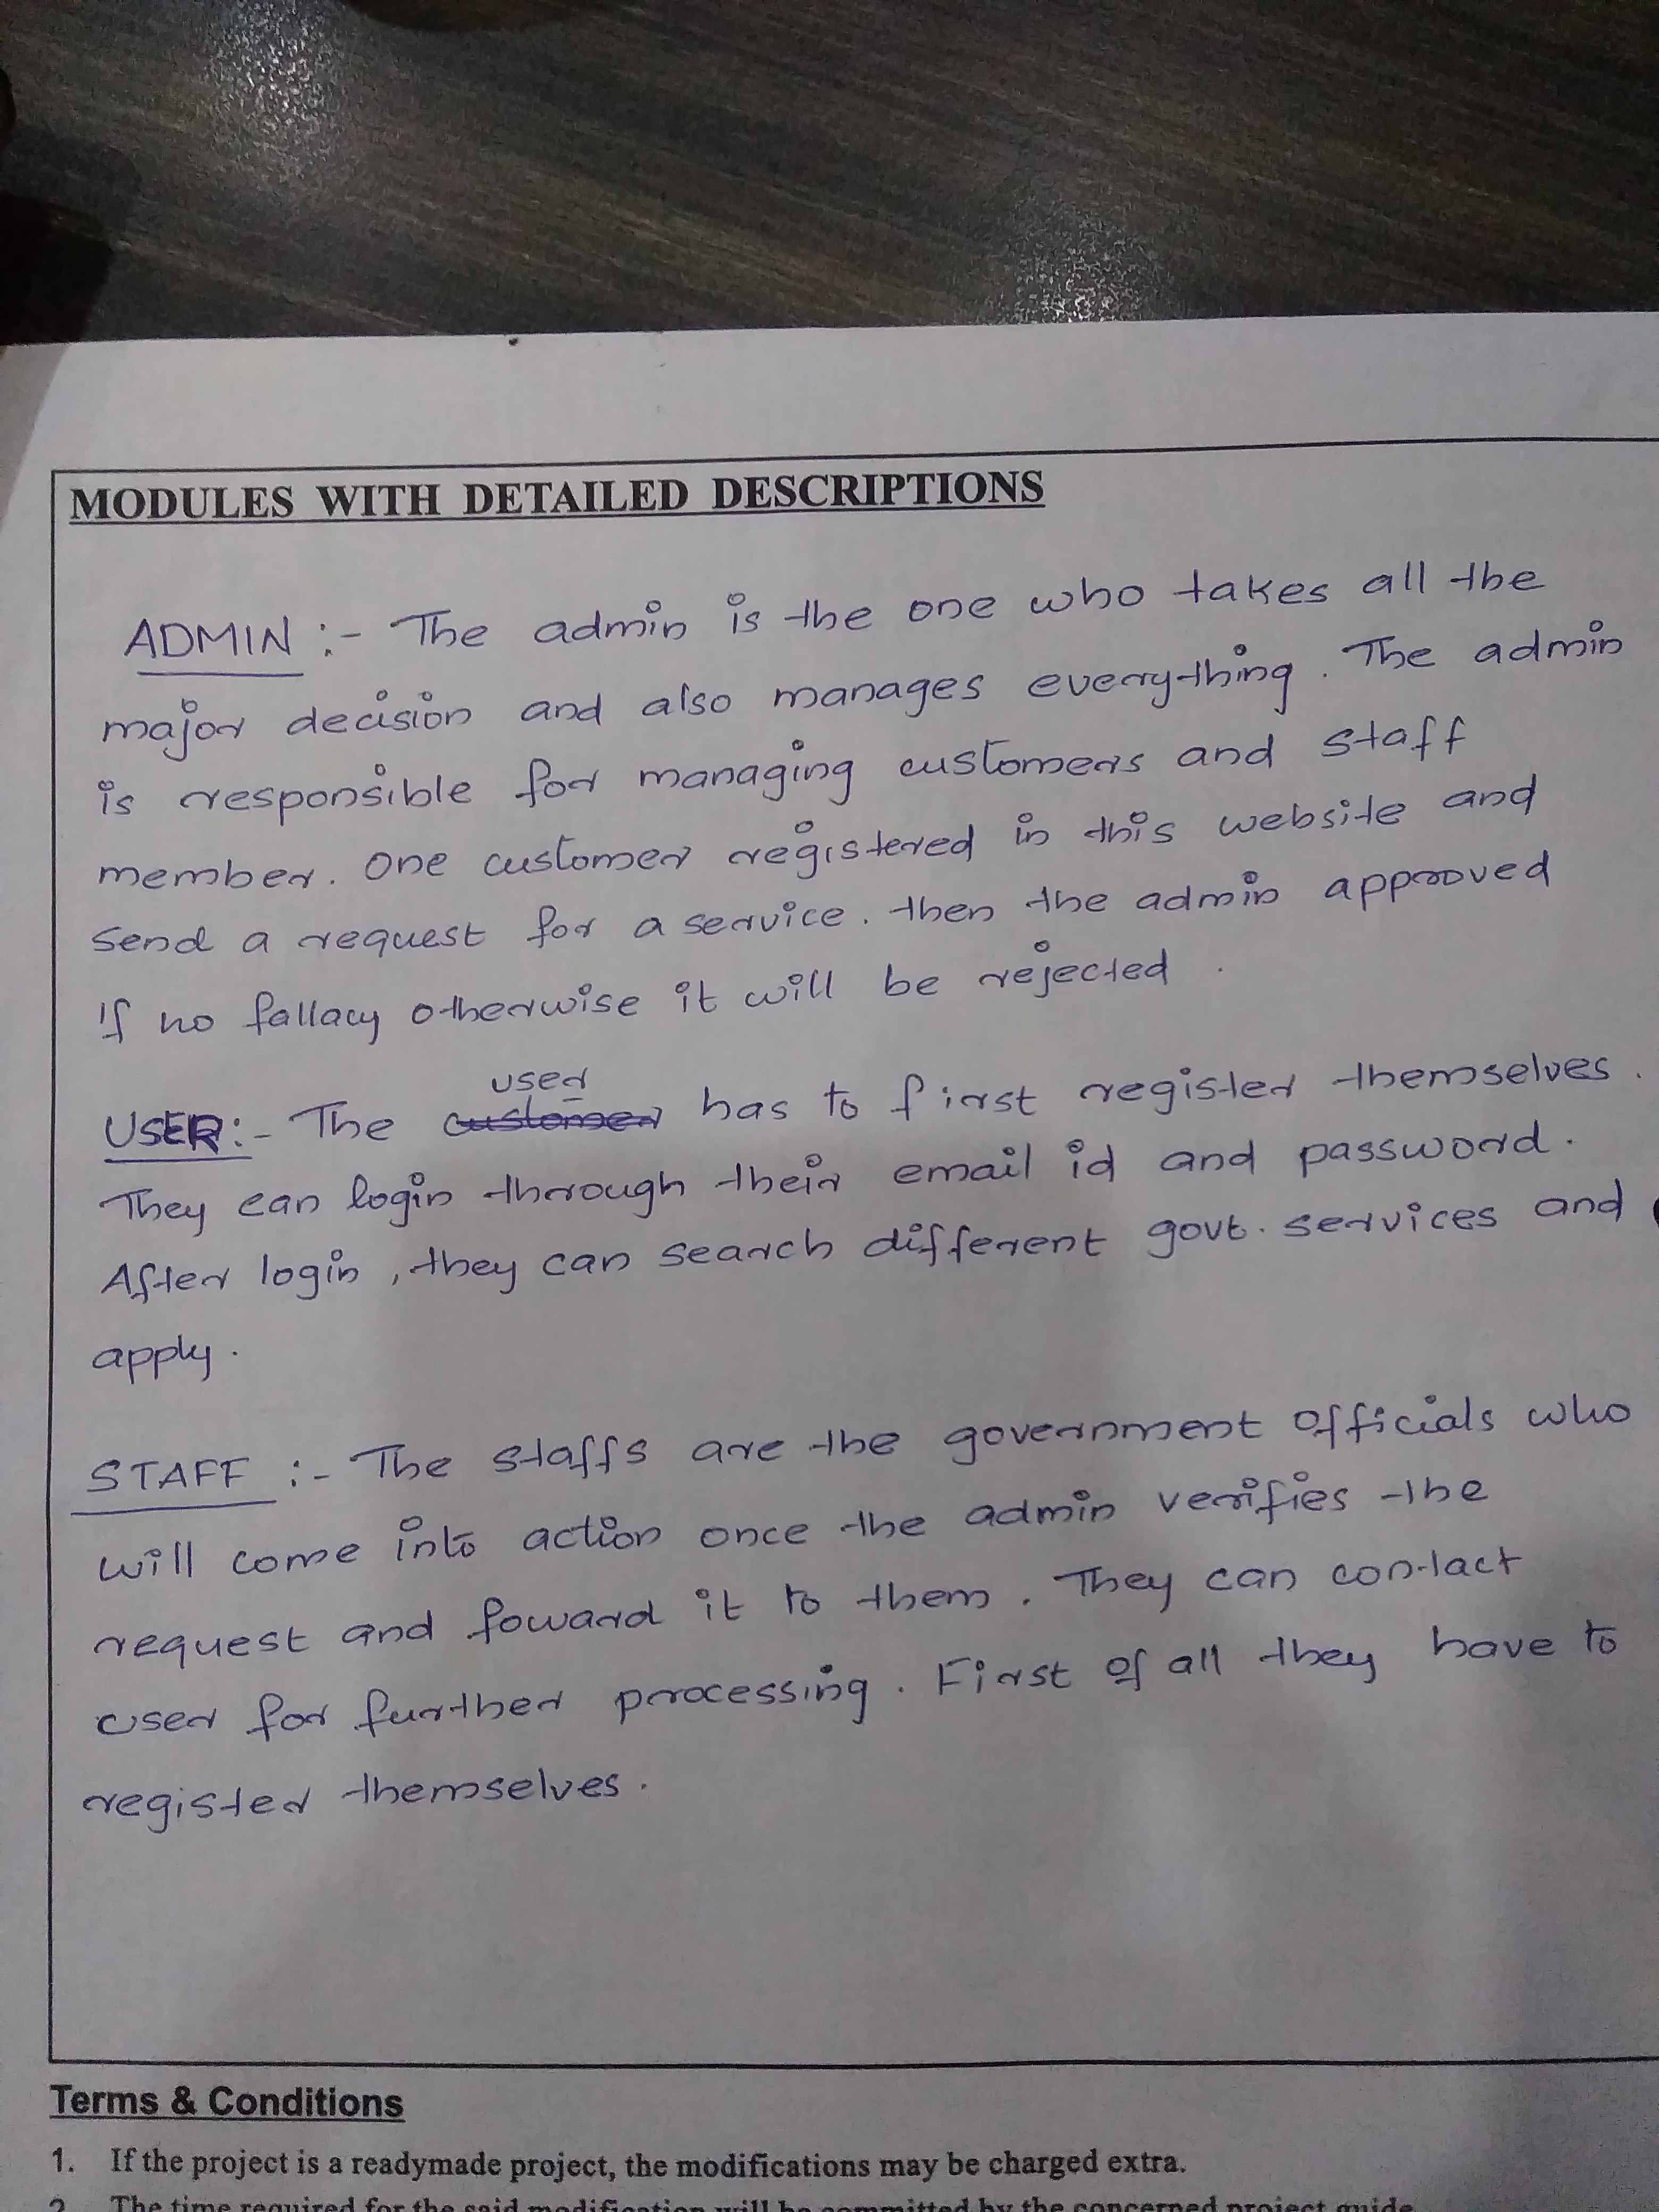 MODULES WITH DETAILED DESCRIPTIONS
ADMIN :- The admin is the one who takes all the
major decision and also manages everything. The admin
is responsible for managing customers and staff
member. One customer registered in this website and
send a request for a service. then the admin approved
if no fallacy otherwise it will be rejected.
user
USER:- The customer has to first register themselves.
They can login through their email id and password.
After login, they can search different govt. services and
apply.
STAFF :- The staffs are the government officials who
will come into action once the admin verifies the
request and foward it to them. They can contact
user for further processing. First of all they have to
register themselves.
Terms & Conditions
1. If the project is a readymade project, the modifications may be charged extra.
2. The time required for the said modification will be committed by the concerned project guide